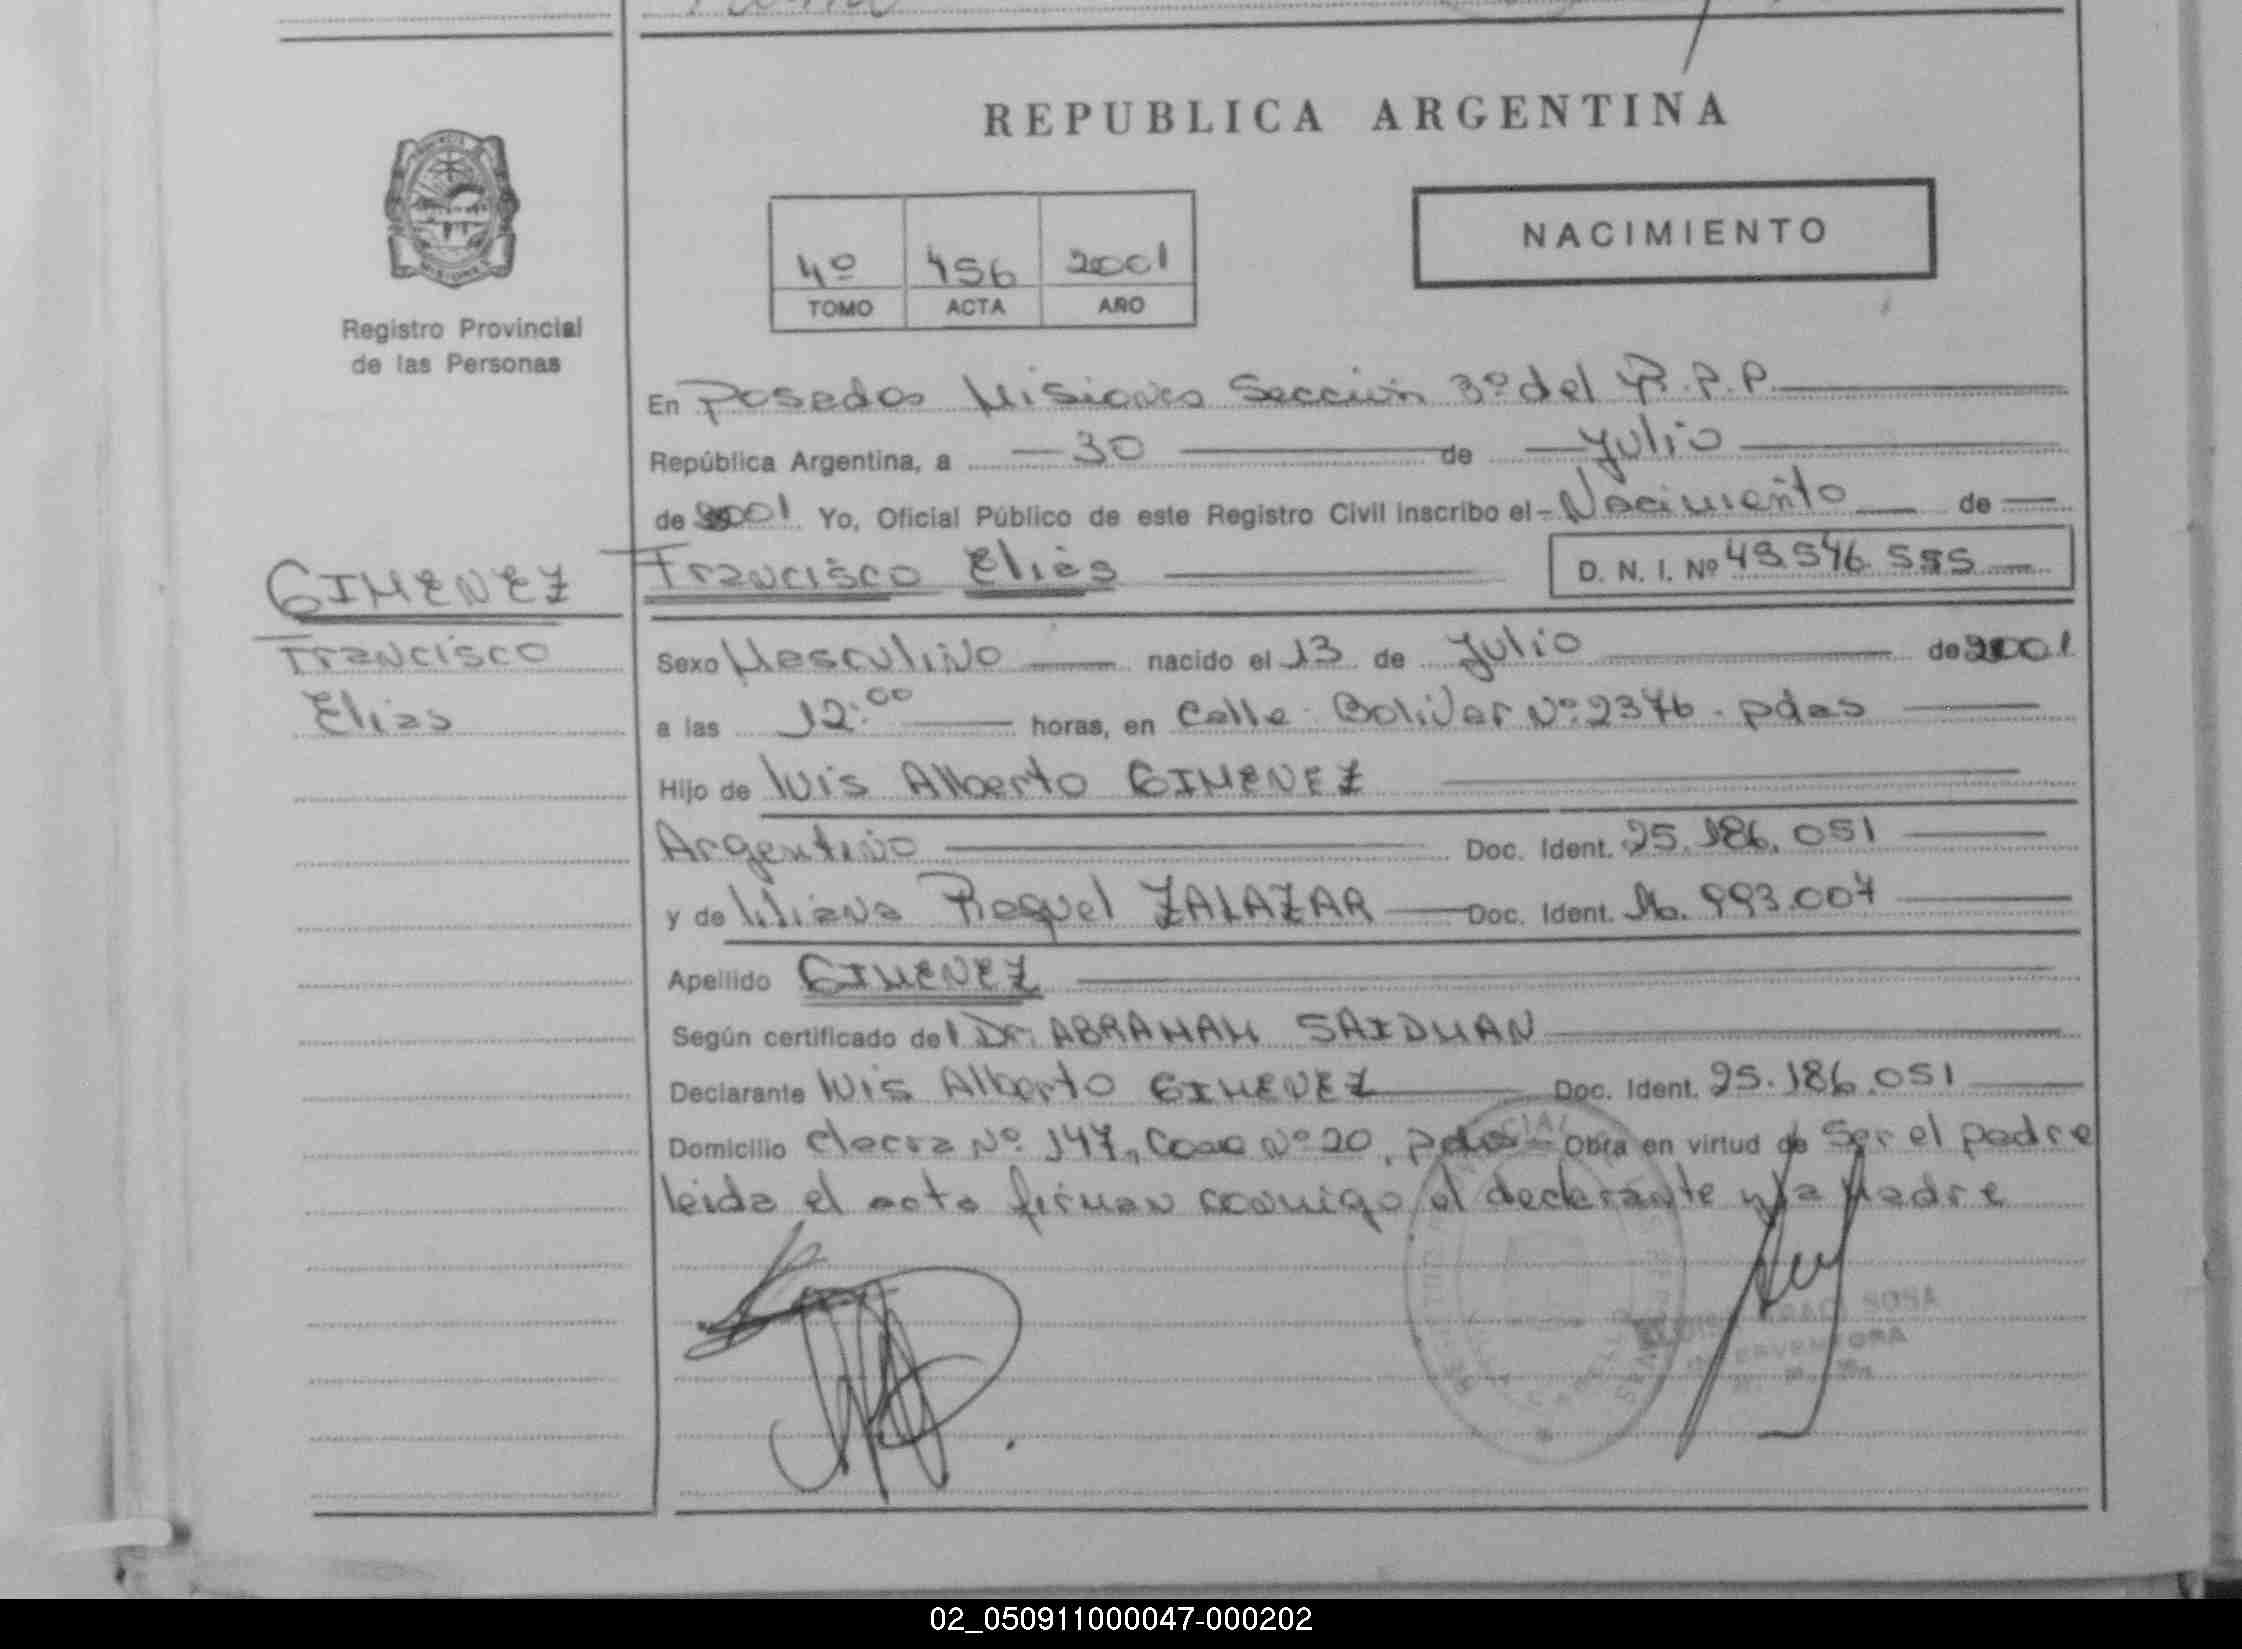 REPUBLICA ARGENTINA
NACIMIENTO
4º 456 2001
TOMO ACTA AÑO
Registro Provincial
de las Personas
En Posadas Misiones Sección 3º del R.P.P.
República Argentina, a 30 de Julio
de 2001 Yo, Oficial Público de este Registro Civil inscribo el Nacimiento de
Francisco Elias D. N. I. Nº 43.546.555
GIMENEZ
Francisco
Elias
Sexo Masculino nacido el 13 de Julio de 2001
a las 12:00 horas, en Calle Bolivar Nº 2376. pdas
Hijo de Luis Alberto GIMENEZ
Argentino Doc. Ident. 25.186.051
y de Liliana Raquel ZALAZAR Doc. Ident. 993.007
Apellido GIMENEZ
Según certificado del Dr. ABRAHAM SAIDMAN
Declarante Luis Alberto GIMENEZ Doc. Ident. 25.186.051
Domicilio Chacra Nº 147, Casa Nº 20, pdas Obra en virtud de Ser el padre
leida el acta firman conmigo el declarante y la Madre
SOSA
INTERVENTORA
02_050911000047-000202